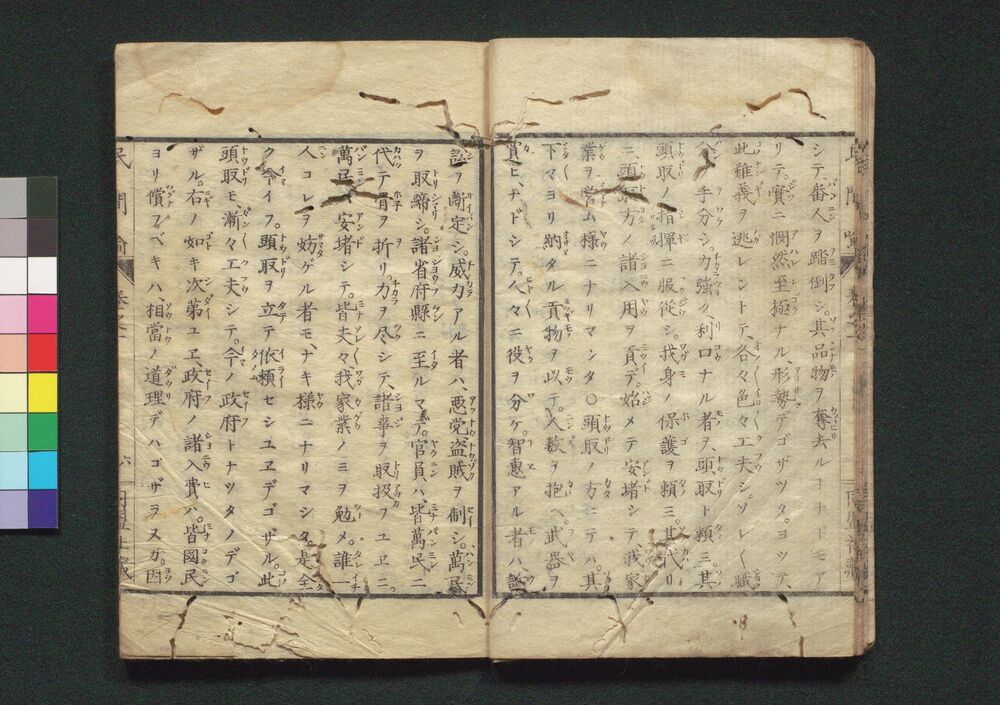 シテ。番人ヲ踏倒シ。其品物ヲ奪去ルコトナドモア
リテ。實ニ憫然至極ナル、形勢デゴザツタ。ヨツテ、
此難義ヲ逃レントテ、各々色々工夫シ。ソレ〱職
ノ手分シ。力強ク、利口ナル者ヲ、頭取ト頼ミ。其
頭取ノ指揮ニ服従シ。我身ノ保護ヲ頼ミ。其代リ
ニ頭取方ノ諸入用ヲ貢デ。始メテ安堵シテ我家
業ヲ営ム様ニナリマシタ〇頭取ノ方ニテハ。其
下々ヨリ納タル貢物ヲ以テ。人数ヲ抱ヘ。武器ヲ
買ヒ、ナドシテ。人々ニ役ヲ分ケ。智恵アル者ハ、訟
訟ヲ斷定シ。威力アル者ハ、悪党盗賊ヲ制シ。萬民
ヲ取締シ。諸省府縣ニ至ルマデ。官員ハ、皆萬民ニ
代テ骨ヲ折リ。力ヲ尽シテ、諸事ヲ取扱フユヱニ
萬民ハ安堵シテ。皆夫々我家業ノミヲ勉メ。誰一
人コレヲ妨ゲル者モ、ナキ様ニナリマシタ。是全
ク今イフ。頭取ヲ立テ依頼セシユヱデゴザル。此
頭取モ、漸々工夫シテ。今ノ政府トナツタノデゴ
ザル。右ノ如キ次第ユヱ、政府ノ諸入費ハ。皆國民
ヨリ償フベキハ、相當ノ道理デハゴザラヌカ。因